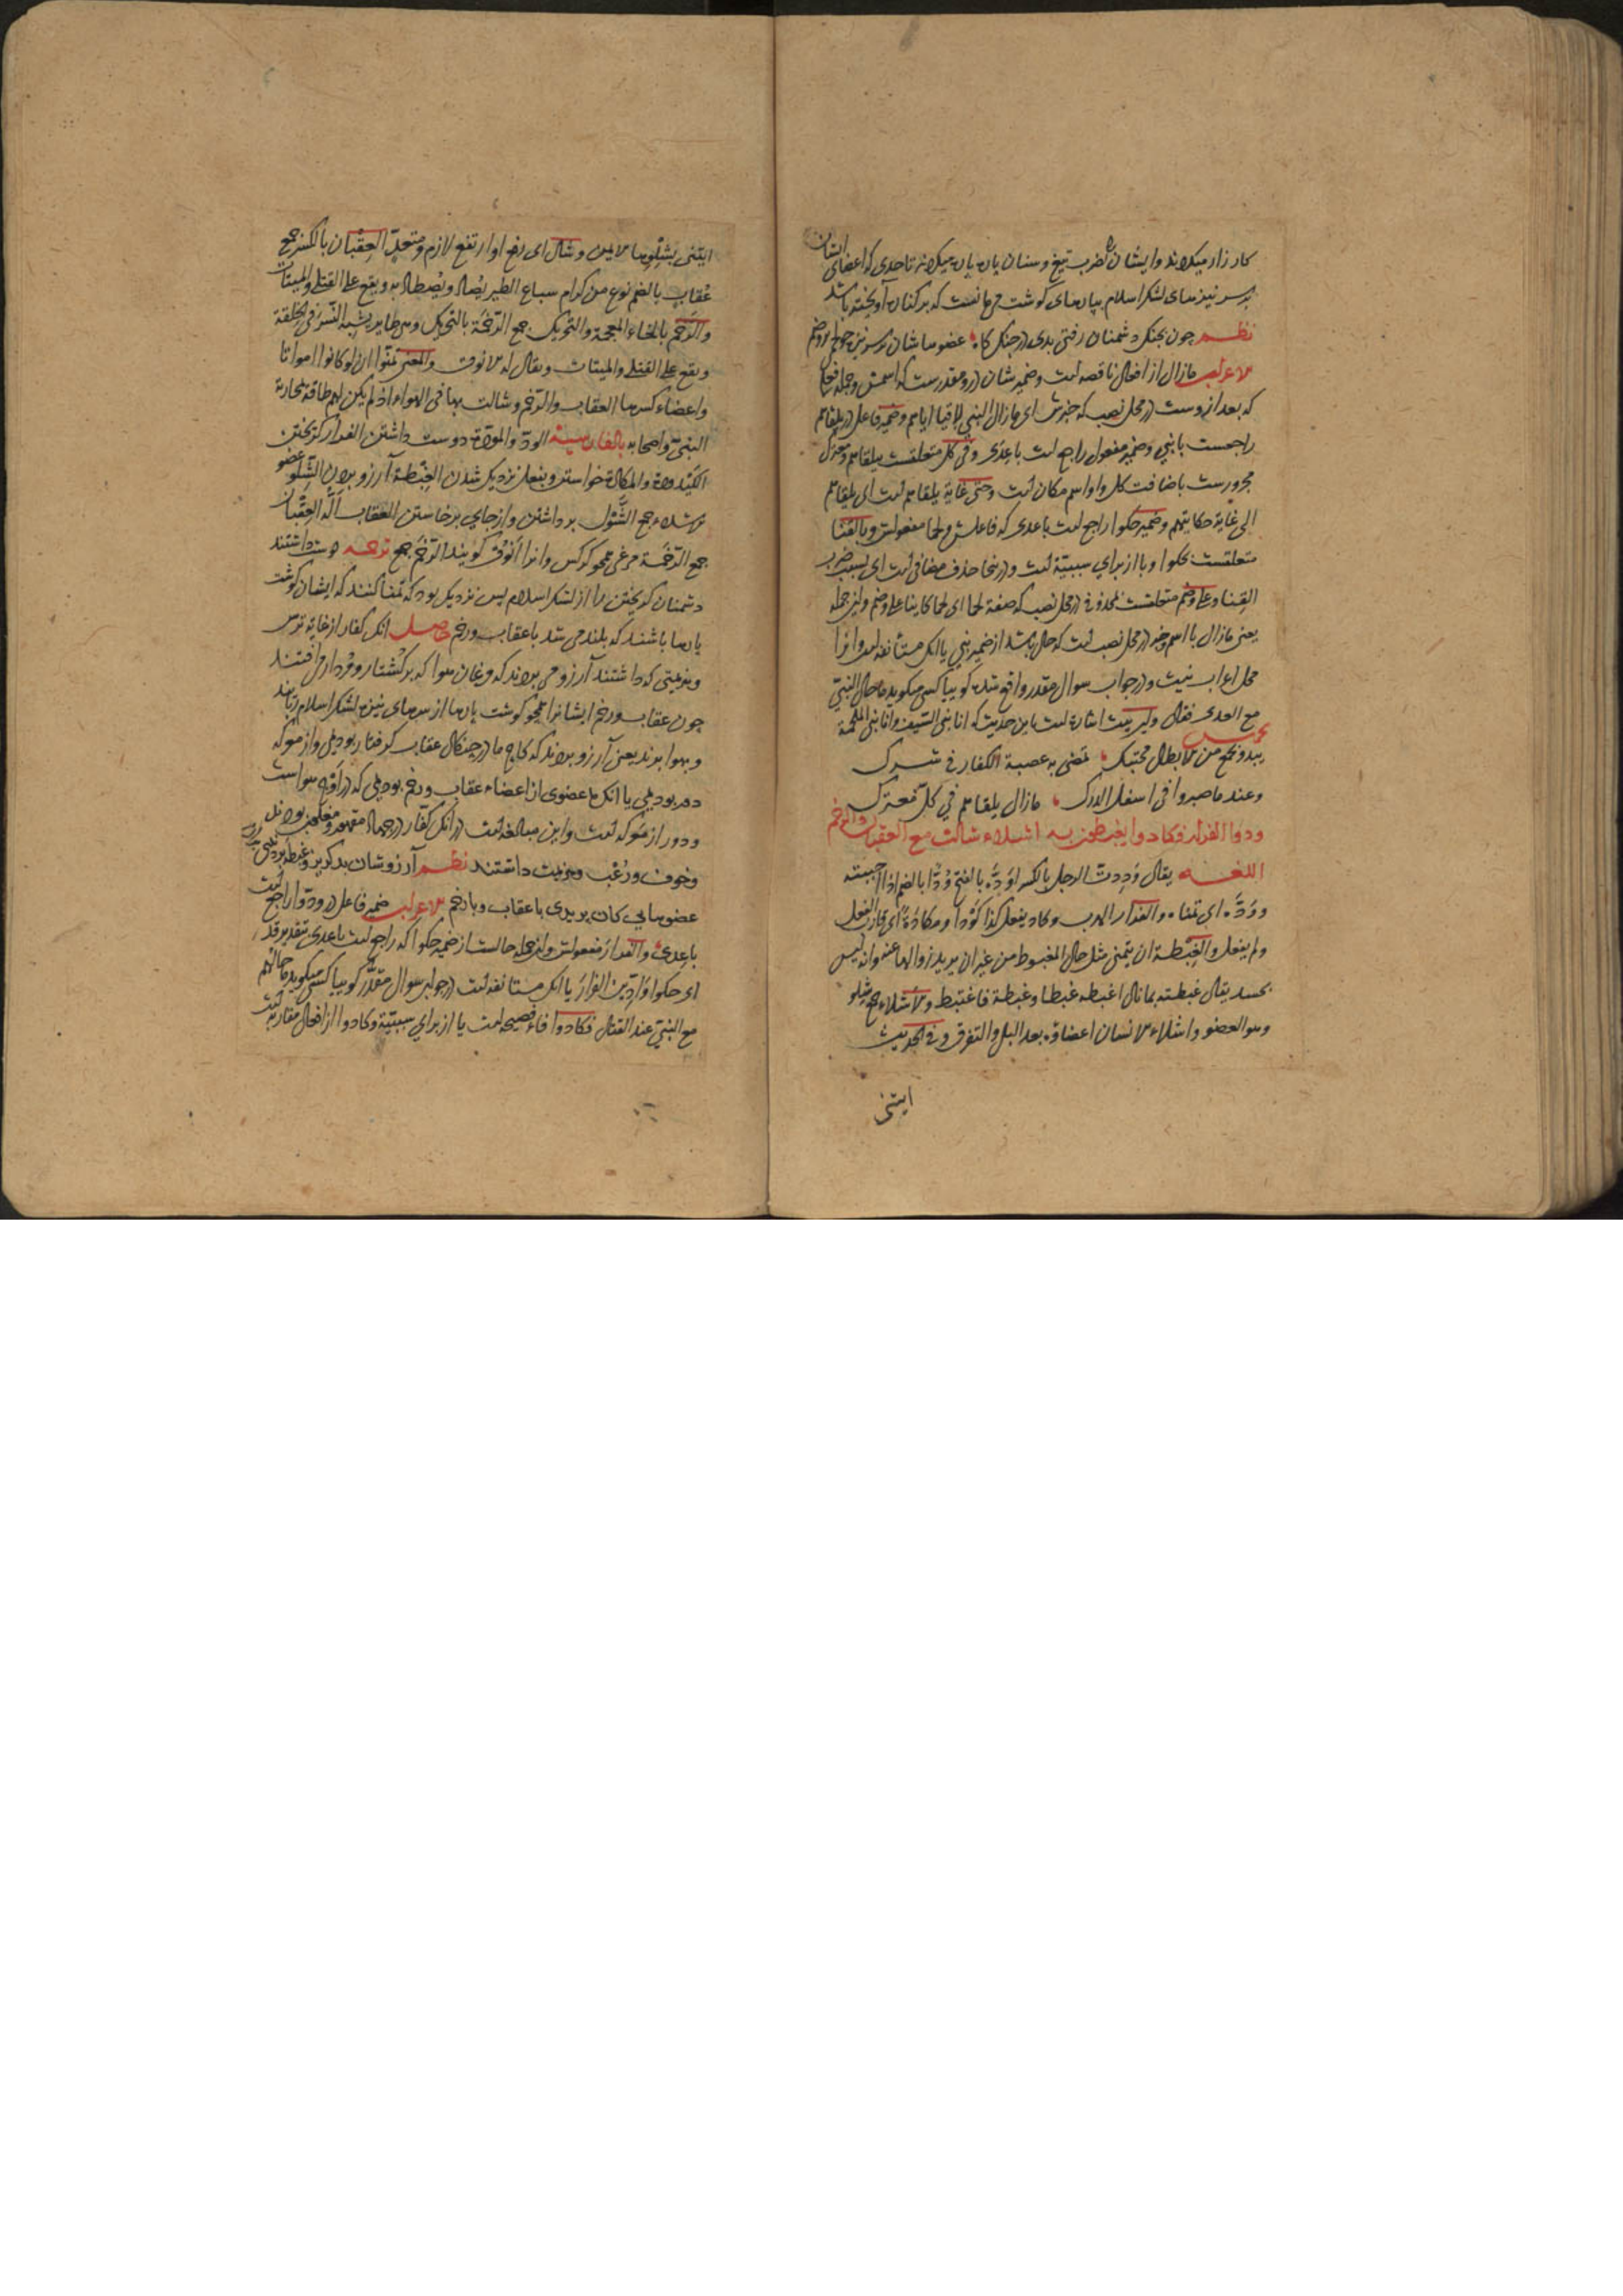 کارزار میکردند وایشانرا بضرب تیغ وسنان پاره پاره میکردند تاحدی که اعضای ایشان
بر سر نیزهای لشکر اسلام بپارهای کوشت می مانست که بر کناره آویخته باشد
نظم چون بجنک دشمنان رفتی بدی در جنک کاه عضوهاشان بر سر نیزه چو لحم بر وضم
الاعراب مازال از افعال ناقصه است وضمیر شان درو مقدرست که اسمش وجمله فعلی
که بعد ازوست در محل نصب که خبرش ای مازال النبی لاقیا ایاهم وضمیر فاعل در یلقاهم
راجعست بانبی وضمیر مفعول راجع است باعدی وفی کل متعلقست بیلقاهم ومعترک
مجرورست باضافت کل واو اسم مکان است وحتی غایة یلقاهم است ای یلقاهم
الی غایة حکایتهم وضمیر حکوا راجع است باعدی که فاعلش ولحما مفعولش وبالقنا
متعلقست بحکوا وبا از برای سببیّة است ودرینجا حذف مضافی است ای بسبب ضرب
القنا وعلی وضم متعلقست بمحذوف در محل نصب که صفة لحما ای لحما کاینا علی وضم واین جمله
یعنی مازال با اسم وخبر در محل نصب است که حال باشد از ضمیر نبی یا انک مستأنفه است وانرا
محل اعراب نیست ودر جواب سوال مقدر واقع شده کوییا کسی میکوید ما حال النبی
مع العدی فقال واین بیت اشارة است باین حدیث که انا نبی السیف وانا نبی الملحمة
یبدو بجمع من الابطال محتبک تمضی به عصبة الکفار فی شرک
وعندما صبروا فی اسفل الدرک مازال یلقاهم فی کل معترک
ودوا الفرار فکادوا یغبطون به اشلاء شالت مع العقبان والرخم
اللغه یقال وَدِدتُ الرجل بالکسر اوَدُّه بالفتح وُدًّا بالضم اذا احببته
ووَدَّه ای تمناه والفرار الهرب وکاد یفعل کذا کَوْدًا ومکادَةً ای قارب الفعل
ولم یفعل والغبطة ان یتمنی مثل حال المغبوط من غیر ان یرید زوالها عنه وانه لیس
بحسد یقال غبطته بما نال اغبطه غبطا وغبطة فاغتبط والاشلاء جمع شلو
وهو العضو واشلاء الانسان اعضاؤه بعد البلی والتفرق وفی الحدیث
ایتنی
ایتنی بشلوها الایمن وشال ای رفع او ارتفع لازم ومتعدّ العِقْبان بالکسر جمع
عُقاب بالضم نوع من کرام سباع الطیر یُصاد ویُصطاد به ویقع علی القتلی والمیتات
والرَخَم بالخاء المعجمة والتحریک جمع الرخمة بالتحریک وهی طایر یشبه النسر فی الخلقة
ویقع علی القتلی والمیتات ویقال له الانوق والمعنی تمنّوا ان لو کانوا امواتا
واعضاء کسرها العقاب والرخم وشالت بها فی الهواء اذ لم یکن لهم طاقة محاربة
النبی واصحابه بالفارسیة الودّ والمودّة دوست داشتن الفرار کریختن
الکیدودة والمکادة خواستن وبفعل نزدیک شدن الغبطة آرزو بردن الشلو عضو
الاشلاء جمع الشَّوْل برداشتن واز جای برخاستن العقاب اَلُه العقبان
جمع الرخمة مرغی همچو کرکس وانرا اَنوق کویند الرخم جمع ترجمه دوست داشتند
دشمنان کریختن را از لشکر اسلام پس نزدیک بود که تمنا کنند که ایشان کوشت
پارها باشند که بلند می شد با عقاب ورخم حاصل انک کفار از غایة ترس
وهزیمتی که داشتند آرزو می بردند که مرغان هوا که بر کشتار ومردار می افتند
چون عقاب ورخم ایشانرا همچو کوشت پارها از سرهای نیزه لشکر اسلام ربایند
وبهوا برند یعنی آرزو بردند که کاج ما در چنکال عقاب کرفتار بودیمی واز معرکه
دور بودیمی یا انک ما عضوی از اعضاء عقاب ورخم بودیمی که در اوج هواست
ودور از معرکه است واین مبالغه است در انک کفّار در جهاد مقهور ومغلوب بودند
وخوف ورُعْب وهزیمت داشتند نظم آرزوشان بد کریز وغبطه بردندی بدان
عضوهایی کان پریدی با عقاب وبا رخم الاعراب ضمیر فاعل در ودّوا راجع است
باعدی والفرار مفعولش واین جمله حالست از ضمیر حکوا که راجع است باعدی بتقدیر قد
ای حکوا وَادّین الفرارَ یا انک مستانفه است در جواب سوال مقدّر کوییا کسی میکوید ما حالهم
مع النبی عند القتال فکادوا فاء فصیحه است یا از برای سببیّة وکادوا از افعال مقاربه است